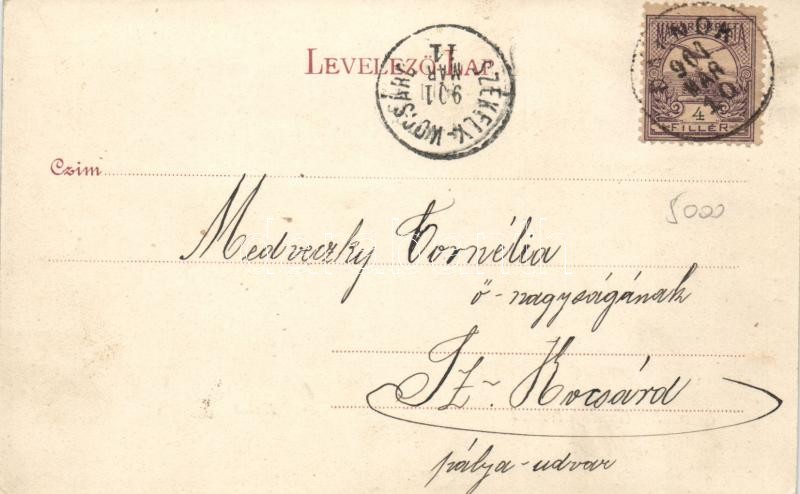 LEVELEZŐ-LAP
SZÉKELY-KOCSÁRD
901
MAR
11
MAGYAR KIR. POSTA
901
MAR
10
4
FILLÉR
Czim
5000
Medveczky Cornélia
ő-nagyságának
Sz-Kocsárd
pálya-udvar